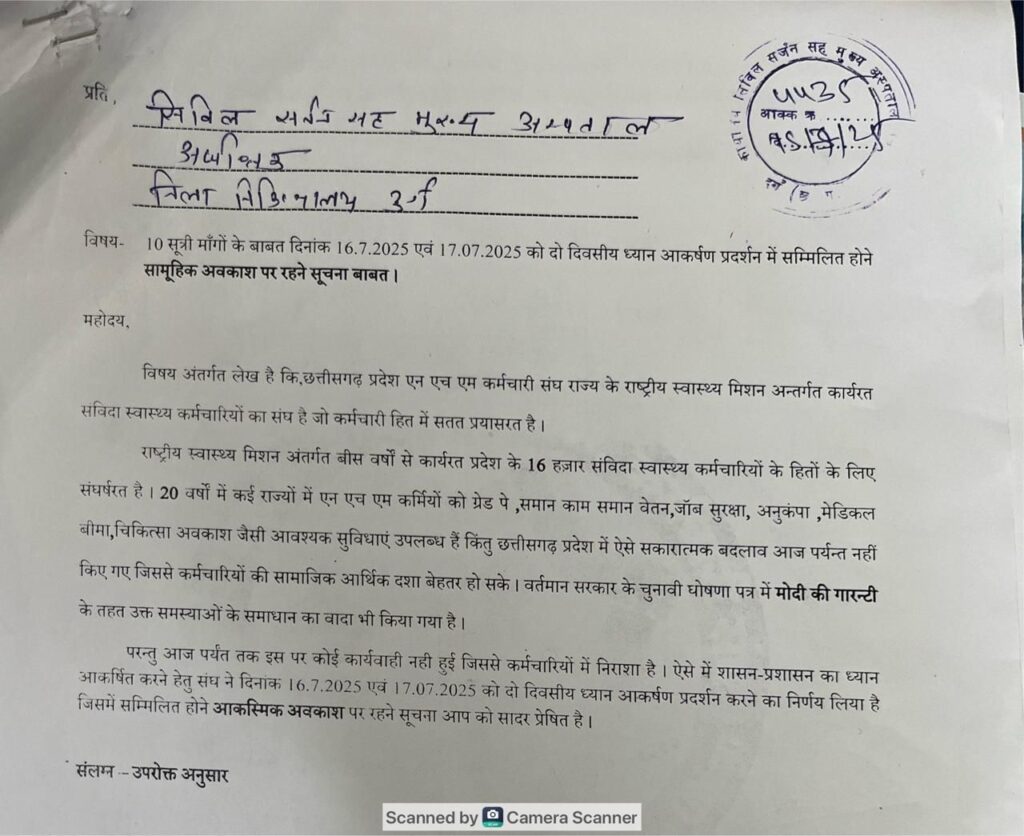 प्रति,
सिविल सर्जन सह मुख्य अस्पताल
अधीक्षक
जिला चिकित्सालय दुर्ग
सिविल सर्जन सह मुख्य अस्पताल
आवक क्र
विषय- 10 सूत्री माँगों के बाबत दिनांक 16.7.2025 एवं 17.07.2025 को दो दिवसीय ध्यान आकर्षण प्रदर्शन में सम्मिलित होने
सामूहिक अवकाश पर रहने सूचना बाबत।
महोदय,
विषय अंतर्गत लेख है कि,छत्तीसगढ़ प्रदेश एन एच एम कर्मचारी संघ राज्य के राष्ट्रीय स्वास्थ्य मिशन अन्तर्गत कार्यरत
संविदा स्वास्थ्य कर्मचारियों का संघ है जो कर्मचारी हित में सतत प्रयासरत है।
राष्ट्रीय स्वास्थ्य मिशन अंतर्गत बीस वर्षों से कार्यरत प्रदेश के 16 हज़ार संविदा स्वास्थ्य कर्मचारियों के हितों के लिए
संघर्षरत है। 20 वर्षों में कई राज्यों में एन एच एम कर्मियों को ग्रेड पे ,समान काम समान वेतन,जॉब सुरक्षा, अनुकंपा ,मेडिकल
बीमा,चिकित्सा अवकाश जैसी आवश्यक सुविधाएं उपलब्ध हैं किंतु छत्तीसगढ़ प्रदेश में ऐसे सकारात्मक बदलाव आज पर्यन्त नहीं
किए गए जिससे कर्मचारियों की सामाजिक आर्थिक दशा बेहतर हो सके। वर्तमान सरकार के चुनावी घोषणा पत्र में मोदी की गारन्टी
के तहत उक्त समस्याओं के समाधान का वादा भी किया गया है।
परन्तु आज पर्यंत तक इस पर कोई कार्यवाही नही हुई जिससे कर्मचारियों में निराशा है। ऐसे में शासन-प्रशासन का ध्यान
आकर्षित करने हेतु संघ ने दिनांक 16.7.2025 एवं 17.07.2025 को दो दिवसीय ध्यान आकर्षण प्रदर्शन करने का निर्णय लिया है
जिसमें सम्मिलित होने आकस्मिक अवकाश पर रहने सूचना आप को सादर प्रेषित है।
संलग्न – उपरोक्त अनुसार
Scanned by Camera Scanner